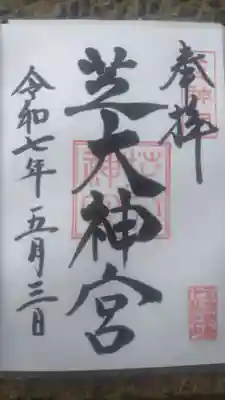 奉拝
芝大神宮
令和七年五月三日